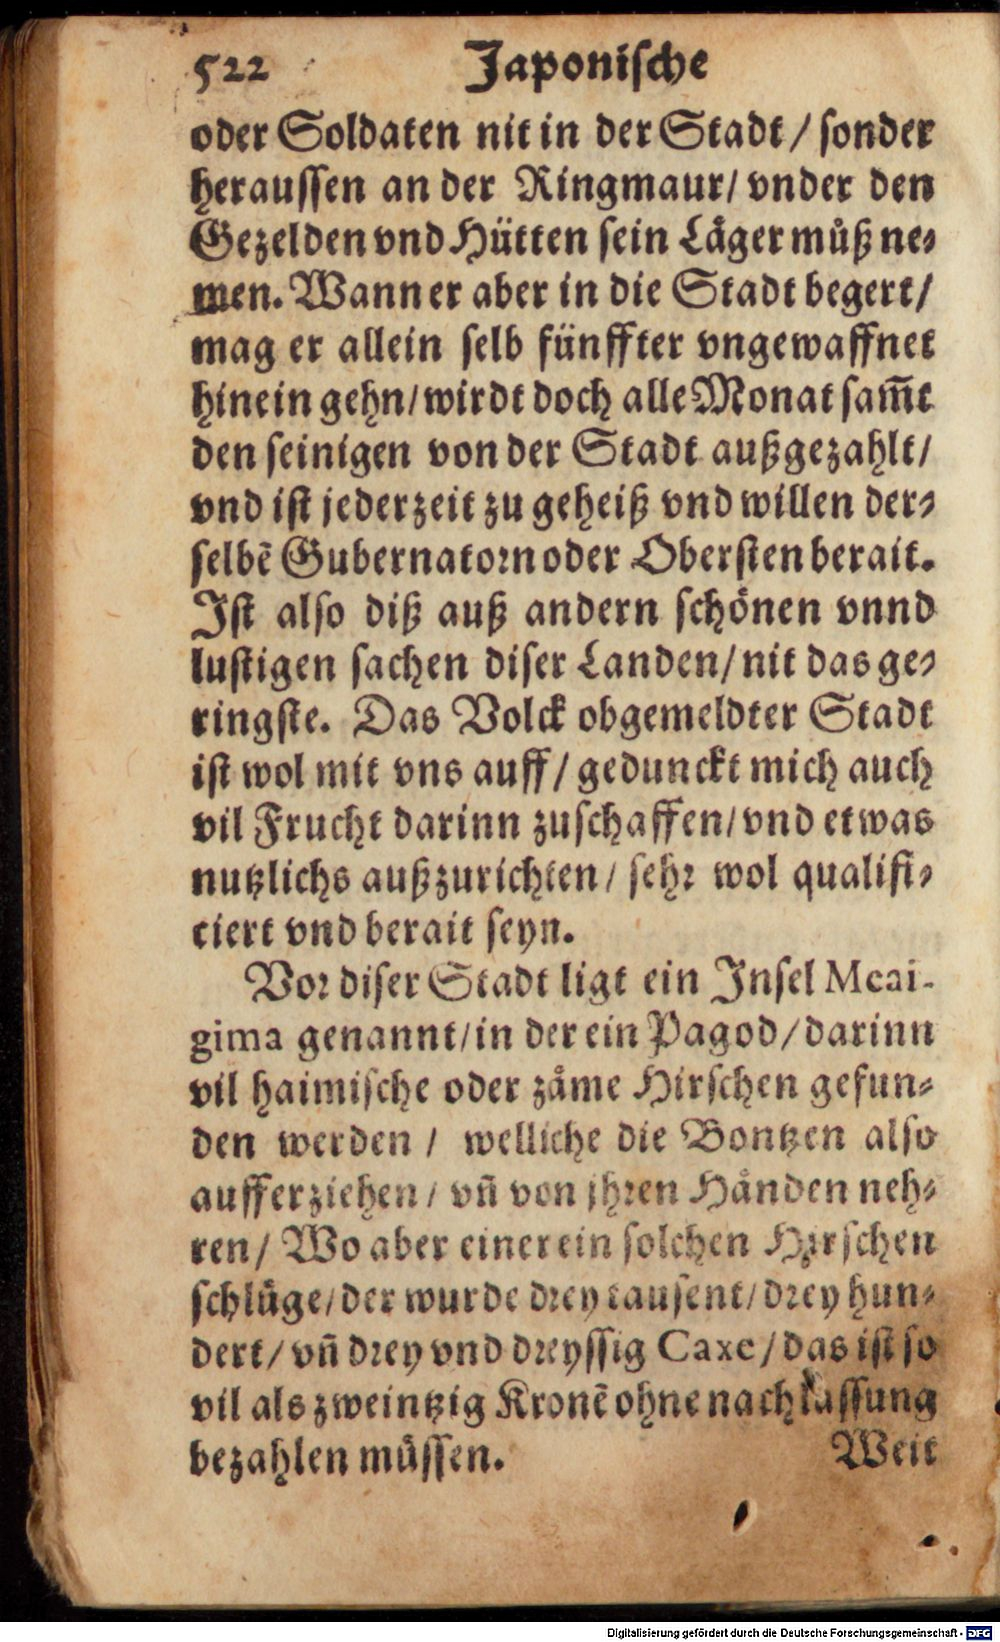 522 Japonische
oder Soldaten nit in der Stadt / sonder
heraussen an der Ringmaur / vnder den
Gezelden vnd Hütten sein Låger můß ne⸗
men. Wann er aber in die Stadt begert /
mag er allein selb fünffter vngewaffnet
hinein gehn / wirdt doch alle Monat sam̃t
den seinigen von der Stadt außgezahlt /
vnd ist jederzeit zu geheiß vnd willen der⸗
selbẽ Gubernatorn oder Obersten berait.
Ist also diß auß andern schönen vnnd
lustigen sachen diser Landen / nit das ge⸗
ringste. Das Volck obgemeldter Stadt
ist wol mit vns auff / gedunckt mich auch
vil Frucht darinn zuschaffen / vnd etwas
nutzlichs außzurichten / sehr wol qualifi⸗
ciert vnd berait seyn.
Vor diser Stadt ligt ein Insel Meai-
gima genannt / in der ein Pagod / darinn
vil haimische oder zåme Hirschen gefun⸗
den werden / welliche die Bontzen also
aufferziehen / vñ von jhren Hånden neh⸗
ren / Wo aber einer ein solchen Hirschen
schlůge / der wurde drey tausent / drey hun⸗
dert / vñ drey vnd dreyssig Caxe / das ist so
vil als zweintzig Kronẽ ohne nachlassung
bezahlen můssen. Weit
Digitalisierung gefördert durch die Deutsche Forschungsgemeinschaft - DFG